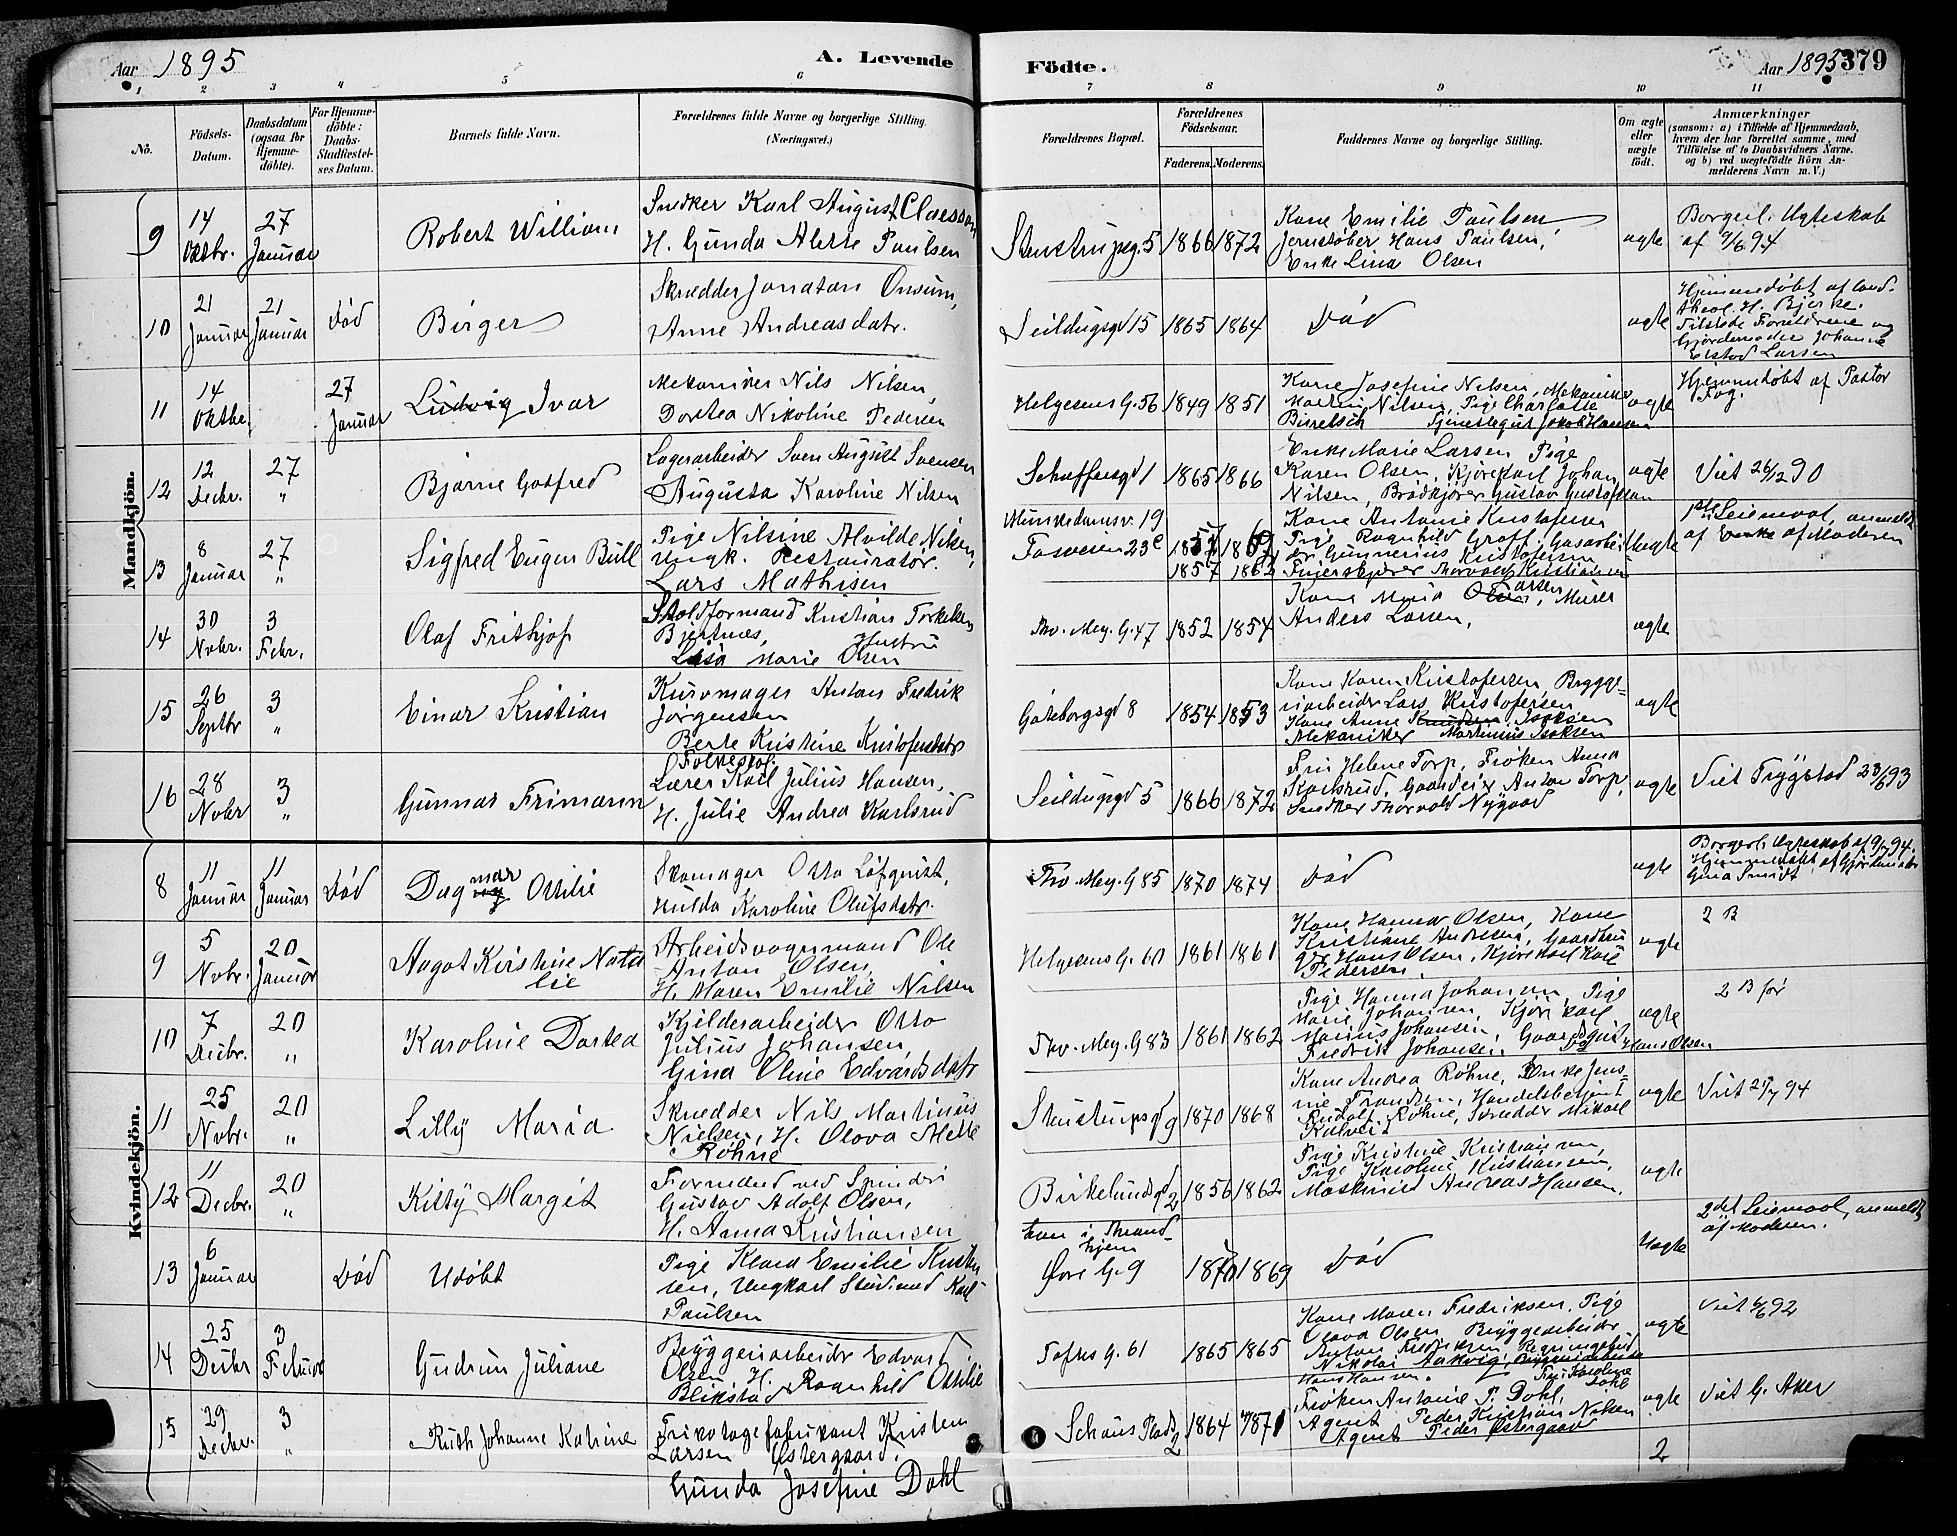 Aar 1895
A. Levende
Födte.
Aar 1895
379
1 2 3 4 5 6 7 8 9 10 11
No.
Födsels-Datum.
Daabsdatum (ogsaa for Hjemmedöbte).
For Hjemmedöbte: Daabs-Stadfæstelses Datum.
Barnets fulde Navn.
Forældrenes fulde Navne og borgerlige Stilling. (Næringsvei.)
Forældrenes Bopæl.
Forældrenes Födselsaar.
Faderens. Moderens.
Faddernes Navne og borgerlige Stilling.
Om ægte eller uægte födt.
Anmærkninger
(saasom: a) i Tilfælde af Hjemmedaab, hvem der har forrettet samme, med Tilföielse af to Daabsvidners Navne. og b) ved uægtefödte Börn Anmelderens Navn m. V.)
Mandkjön.
9 14 Oktbr. 27 Januar Robert William
Snedker Karl August Claesson
H. Gunda Alette Paulsen
Stenstrupsg. 5 1866 1872
Kone Emilie Paulsen
Jernstøber Hans Paulsen,
Enke Lina Olsen
ægte
Borgerl. Ægteskab
af 9/6 94
10 21 Januar 21 Januar Død Birger
Skrædder Jonatan Onsum,
Anne Andreasdatr.
Seildugsgd 15 1865 1864 Død ægte
Hjemmedøbt af cand.
theol. H. Bjerke.
Tilstede Forældrene og
Gjordemoder Johanne
Elstad Larsen
11 14 Oktbr. 27 Januar Ludvig Ivar
Mekaniker Nils Nilsen,
Dortea Nikoline Pedersen
Helgesens G. 56 1849 1851
Kone Josefine Nilsen, Mekaniker
Martin Nilsen, Pige Charlotte
Tjenestegut Jakob Hansen
ægte
Hjemmedøbt af Pastor
Fog.
12 12 Decbr. 27 " Bjarne Gotfred
Lagerarbeider Sven August Svensen
Augusta Karoline Nilsen
Schaffersgd 1 1865 1866
Enke Marie Larsen Pige
Karen Olsen, Kjørekarl Johan
Nilsen, Brødkjører Gustav Gustafsson
ægte
Viet 26/12 90
13 8 Januar 27 " Sigfred Eugen Bull
Pige Nilsine Alvilde Nilsen,
Ungk. Restauratør.
Lars Mathisen
Munkedamsv. 19
Fosveien 23c
1857 1862
Kone Antonie Kristofersen
Pige Ragnhild Groft, Gasarbei-
der Gunnerius Kristofersen
Thorvald Kristiansen
Uægte
1ste Leiermaal, anmeldt
af Enke af Moderen
14 30 Novbr. 3 Febr. Olaf Frithjof
Stoldformand Kristian Torkelsen
Bjertnæs, Hustru
Lisa Marie Olsen
Thv. Mey. G. 47 1852 1854
Kone Maria Olsen Larsen, Murer
Anders Larsen,
ægte
15 26 Septbr 3 " Einar Kristian
Kurvmager Anton Fredrik
Jørgensen
Berte Kristine Kristofersdatr
Gøteborgsgd 8 1854 1853
Kone Karen Kristofersen Brygge-
riarbeider Lars Kristofersen
Kone Anne Knudsen Isaksen
Mekaniker Martinius Isaksen
ægte
16 28 Novbr 3 " Gunnar Frimann
Folkeskol.
Lærer Karl Julius Hansen,
H. Julie Andrea Karlsrud
Seildugsgd 5 1866 1872
Fru Helene Torp, Frøken Anna
Karlsrud, Gaardeier Anton Torp,
Snedker Thorvald Nygaard
ægte
Viet Trygstad 23/6 93
Kvindekjön.
8 11 Januar 11 Januar Død Dagny mar Ottilie
Skomager Otto Löfquist,
Hulda Karoline Olufsdatr.
Thv. Mey. G 85 1870 1874 Død ægte
Borgerl. Ægteskab af 9/7 94.
Hjemmedøbt af Gjordemoder
Gina Smidt
9 5 Novbr. 20 Januar Aagot Kirstine Nata
lie
Arbeidsvognmand Ole
Anton Olsen,
H. Maren Emilie Nilsen
Helgesens G. 60 1861 1861
Kone Hanna Olsen, Kone
Kristiane Andersen, Gaardbru
ger Hans Olsen, Kjørekarl Karl
Pedersen.
ægte
2 B
10 7 Decbr. 20 " Karoline Dortea
Kjelderarbeider Otto
Julius Johansen,
Gina Oline Edvardsdatr
Thv. Mey. G 83 1861 1862
Pige Hanna Johansen, Pige
Marie Johansen, Kjørekarl
Marius Johansen,
Fredrik Johansen, Gaardsgut
Hans Olsen
ægte
2 B før
11 25 Novbr. 20 " Lilly Maria
Skrædder Nils Martinius
Nielsen, H. Olava Mette
Røhne
Stenstrupsgd 9 1870 1868
Kone Andrea Røhne, Enke Jens-
ine Frandsen, Handelsbetjent
Rudolf Røhne, Skrædder Mikael
Kalveit
ægte
Viet 25/7 94
12 11 Decbr. 20 " Kitty Margit
Formand ved Spinderi
Gustav Adolf Olsen,
H. Anna Kristiansen
Birkelundsgd 2 1856 1862
Pige Kristine Kristiansen,
Pige Karoline Kristiansen,
Maskinist Andreas Hansen.
ægte
13 6 Januar Død Udøbt
Pige Klara Emilie Kristen
sen, Ungkarl Stud. med Karl
Paulsen
han i Thrond
hjem
Øvre G. 9 1870 1869 Død Uægte
2det Leiermaal, anmeldt
af Moderen.
14 25 Decbr 3 Februar Gudrun Juliane
Bryggeriarbeider Edvard
Olsen H.
Blikstad Ragnhild Ottilie
Toftes G. 61 1865 1865
Kone Maren Fredriksen, Pige
Olava Olsen Bryggeriarbeider
Anton Fredriksen Regningsbud
Nikolai Aakvig, Bryggeriarbeider
Hans Hansen.
ægte
Viet 6/6 92
15 29 Decbr. 3 " Ruth Johanne Katrine
Trikotagefabrikant Kristen
Larsen Østergaard,
Gunda Josefine Dahl
Schous Plads 2 1864 1871
Fru Karoline
Dahl
Frøken Antonie P. Dahl,
Agent Peder Kristian Nilsen
Agent Peder Østergaard
ægte
Viet G. Aker
2